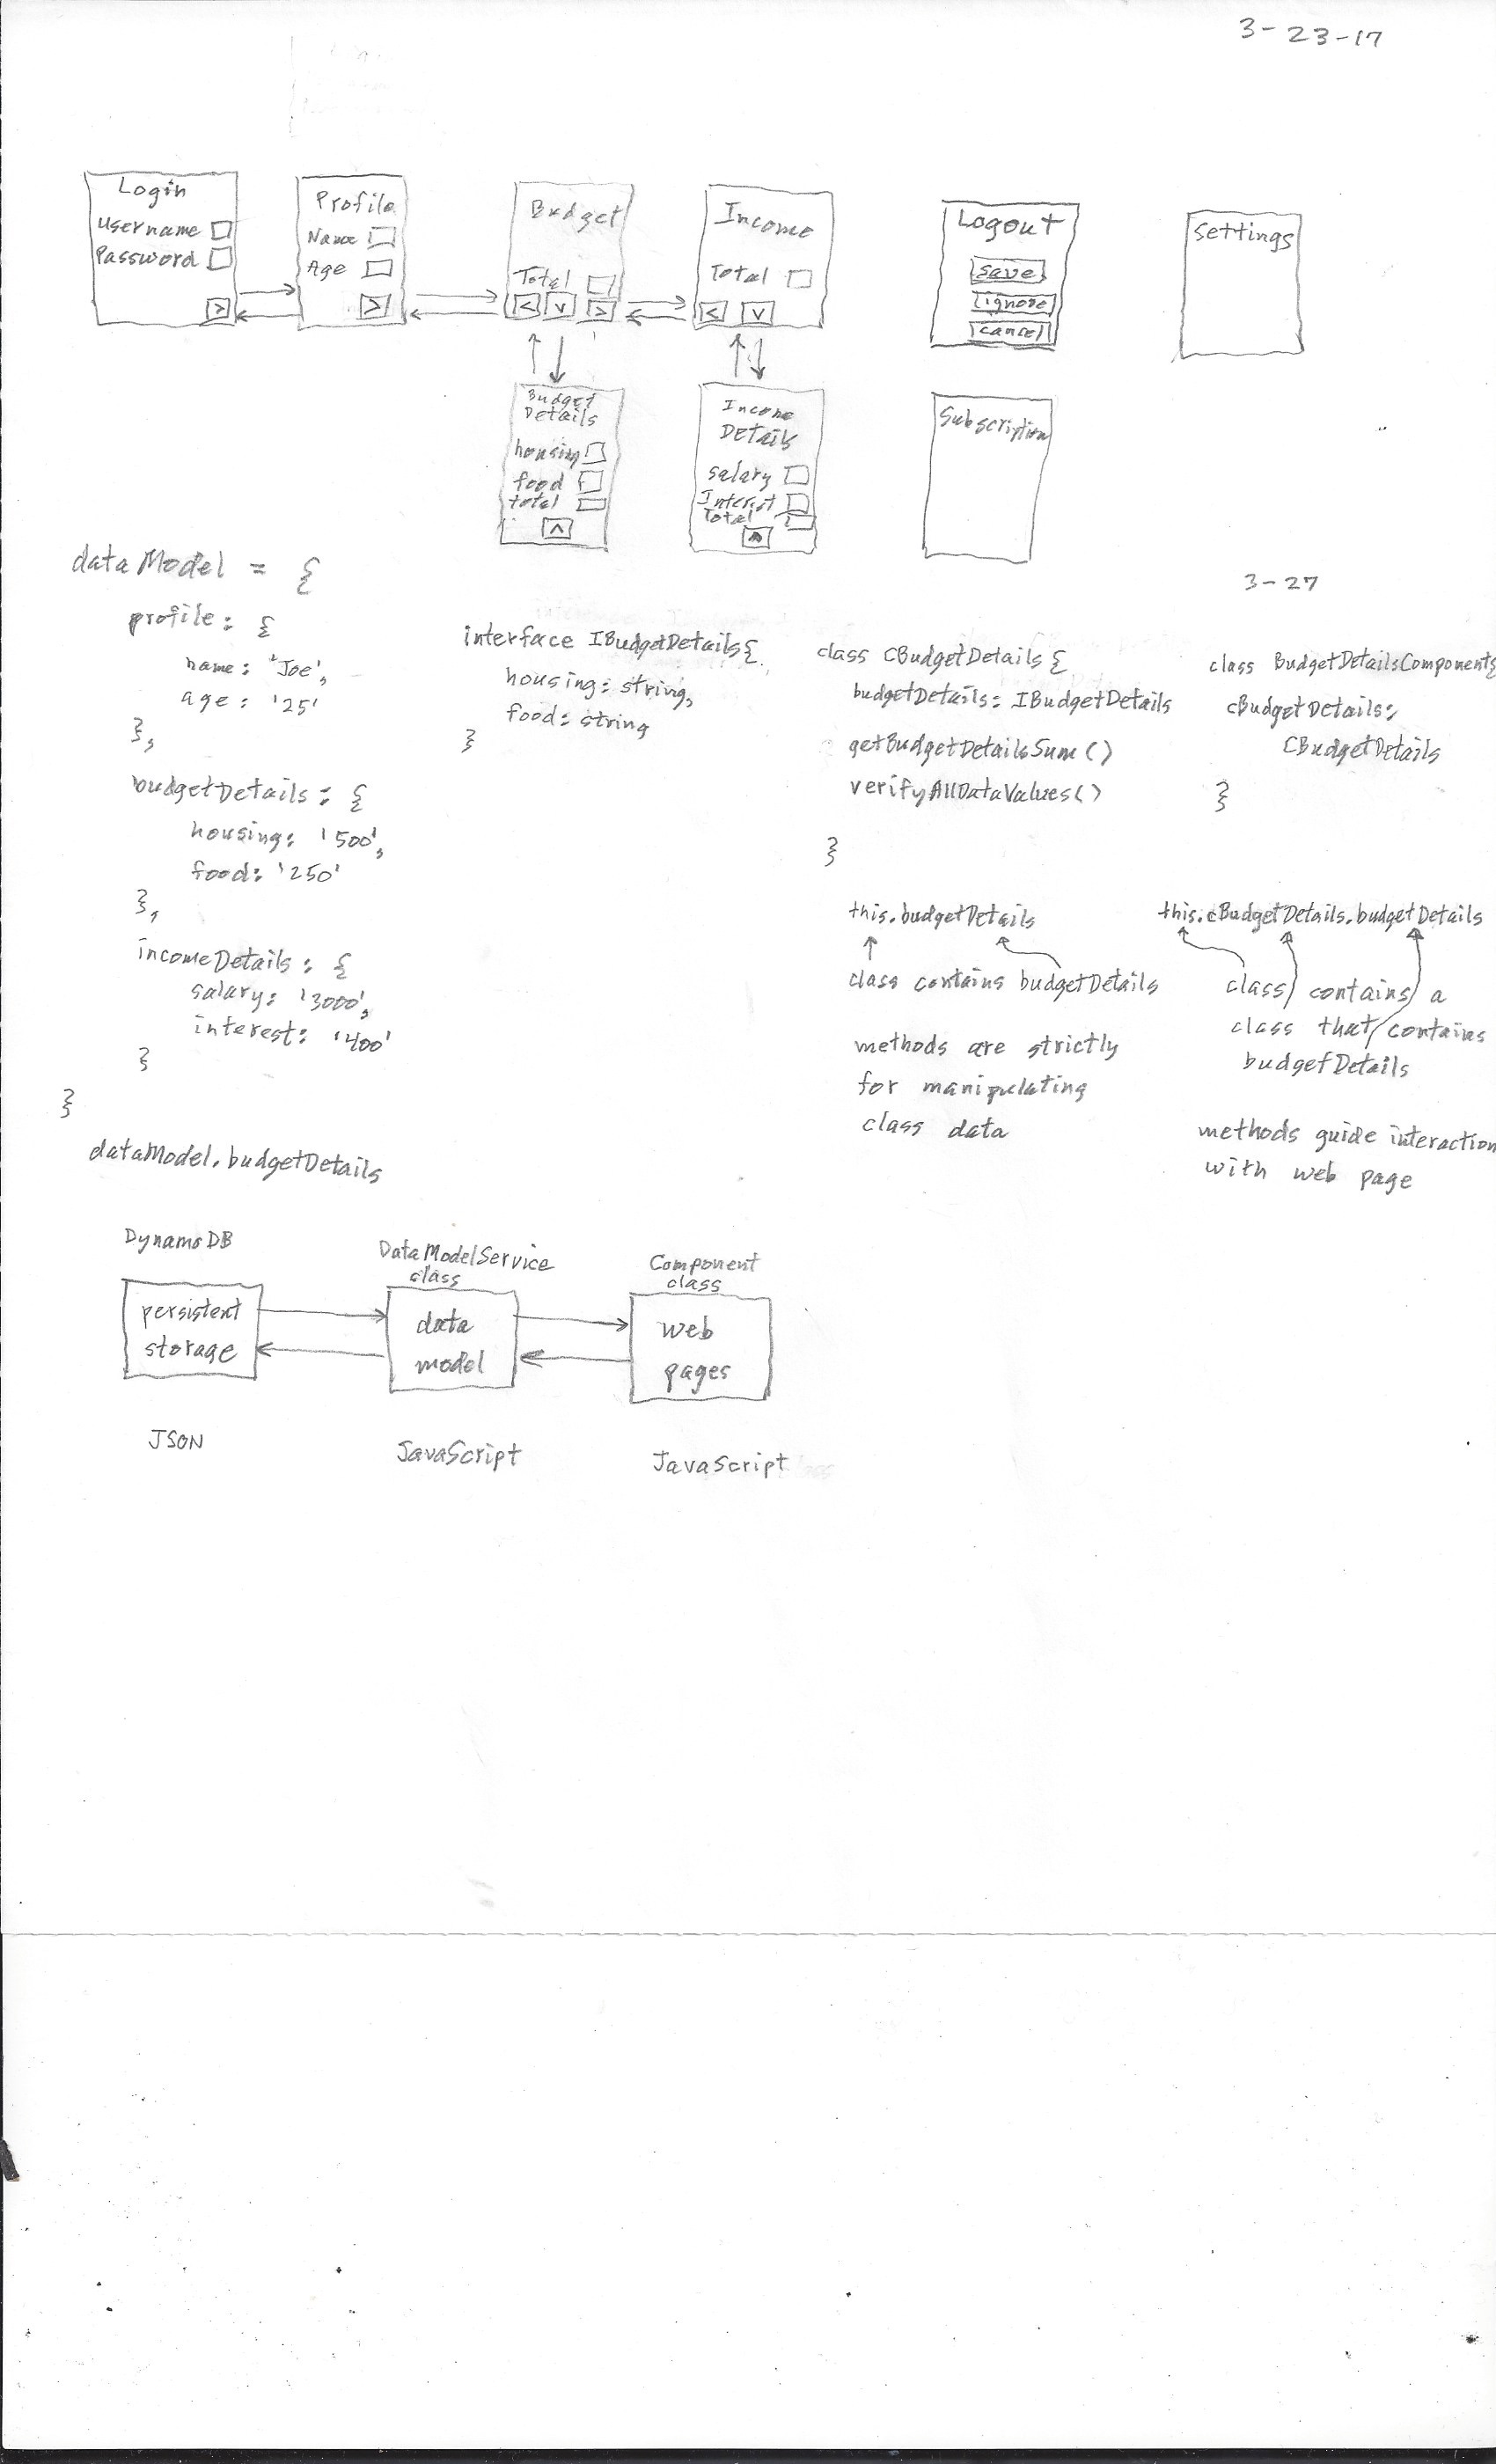 3-23-17
Login
Username
Password
>
Profile
Name
Age
>
Budget
Total
< v >
Income
Total
< v
Logout
save
ignore
cancel
Settings
Budget
Details
housing
food
total
^
Income
Details
salary
Interest
Total
^
Subscription
dataModel = {
profile: {
name: 'Joe',
age: '25'
},
budgetDetails: {
housing: '500',
food: '250'
},
incomeDetails: {
salary: '3000',
interest: '400'
}
}
dataModel.budgetDetails
interface IBudgetDetails{
housing: string,
food: string
}
class CBudgetDetails {
budgetDetails: IBudgetDetails
getBudgetDetailsSum()
verifyAllDataValues()
}
this.budgetDetails
class contains budgetDetails
methods are strictly
for manipulating
class data
3-27
class BudgetDetailsComponent{
cBudgetDetails:
CBudgetDetails
}
this.cBudgetDetails.budgetDetails
class contains a
class that contains
budgetDetails
methods guide interaction
with web page
DynamoDB
persistent
storage
JSON
DataModelService
class
data
model
JavaScript
Component
class
web
pages
JavaScript